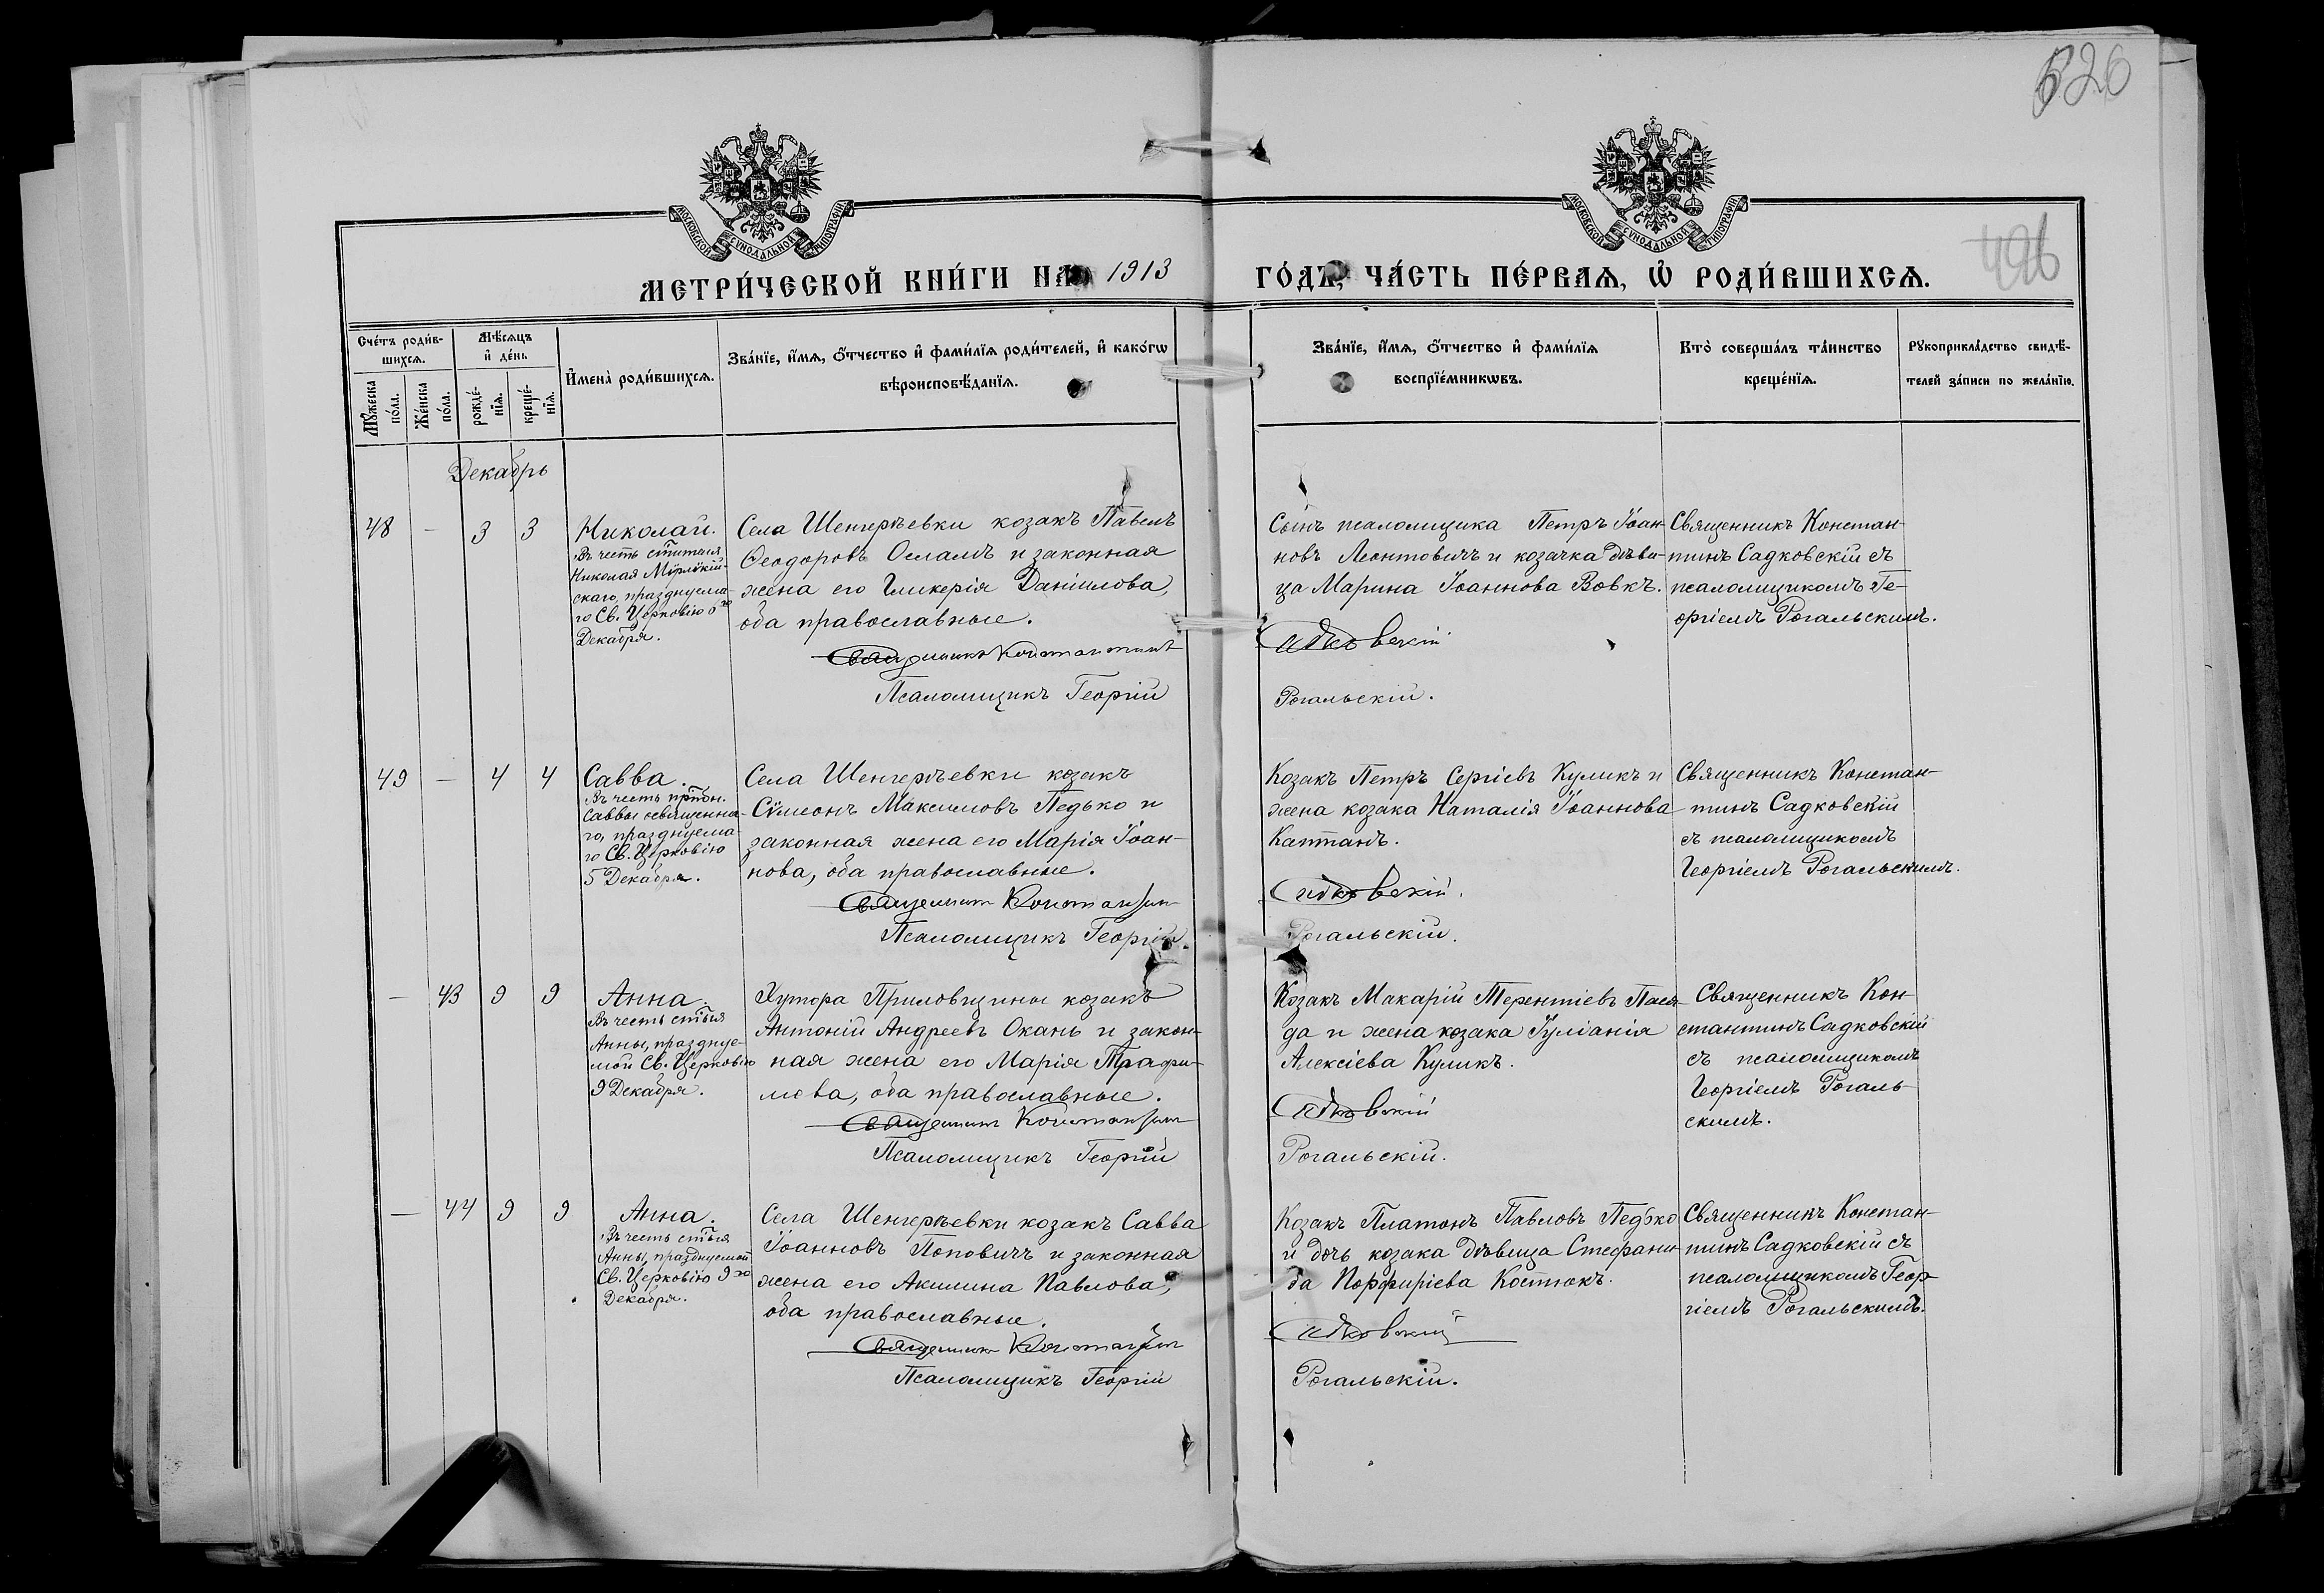 526
496
МОСКОВСКОЙ СУНОДАЛЬНОЙ ТИПОГРАФІИ
МОСКОВСКОЙ СУНОДАЛЬНОЙ ТИПОГРАФІИ
МЕТРИ́ЧЕСКОЙ КНИ́ГИ НА 1913 ГО́ДЪ, ЧА́СТЬ ПЕ́РВАѦ, Ѡ҆ РОДИ́ВШИХСѦ.
Сче́тъ роди́в-
шихсѧ.
Мꙋ́жеска по́ла.
Же́нска по́ла.
Мѣ́сѧцъ
и҆ де́нь
рожде́-
нїѧ.
креще́-
нїѧ.
И҆мена̀ роди́вшихсѧ.
Зва́нїе, и҆́мѧ, ѻ҆́тчество и҆ фами́лїѧ роди́телей, и҆ како́гѡ
вѣроисповѣ́данїѧ.
Зва́нїе, и҆́мѧ, ѻ҆́тчество и҆ фами́лїѧ
воспрїе́мникѡвъ.
Кто̀ соверша́лъ та́инство
креще́нїѧ.
Рꙋкоприкла́дство свидѣ́-
телей за́писи по жела́нїю.
Декабрь
48 — 3 3
Николай.
Въ честь стителя
Николая Мѵрликій-
скаго, празднуема-
го Св. Церковію 6го
Декабря.
Села Шенгерѣевки козакъ Павелъ
Ѳеодоровъ Осламъ и законная
жена его Гликерія Даніилова,
оба православные.
Священникъ Константинъ
Псаломщикъ Георгій
Сынъ псаломщика Петръ Іоан-
новъ Леонтовичъ и козачка дѣви-
ца Марина Іоаннова Вовкъ.
Садковскій
Рогальскій.
Священникъ Констан-
тинъ Садковскій съ
псаломщикомъ Ге-
оргіемъ Рогальскимъ.
49 — 4 4
Савва.
Въ честь прпдн.
Саввы освященна-
го, празднуема-
го Св. Церковію
5 Декабря.
Села Шенгерѣевки козакъ
Сѵмеонъ Максимовъ Педько и
законная жена его Марія Іоан-
нова, оба православные.
Священникъ Константин
Псаломщикъ Георгій
Козакъ Петръ Сергіевъ Куликъ и
жена козака Наталія Іоаннова
Каптанъ.
Садковскій.
Рогальскій.
Священникъ Констан-
тинъ Садковскій
съ псаломщикомъ
Георгіемъ Рогальскимъ.
— 43 9 9
Анна.
Въ честь стыя
Анны, празднуе-
мой Св. Церковію
9 Декабря.
Хутора Приловщины козакъ
Антоній Андреевъ Окань и закон-
ная жена его Марія Трофи-
мова, оба православные.
Священник Константин
Псаломщикъ Георгій
Козакъ Макарій Терентіевъ Пася-
да и жена козака Іуліанія
Алексіева Куликъ.
Садковскій
Рогальскій.
Священникъ Кон-
стантинъ Садковскій
съ псаломщикомъ
Георгіемъ Рогаль-
скимъ.
— 44 9 9
Анна.
Въ честь стыя
Анны, празднуемой
Св. Церковію 9го
Декабря.
Села Шенгерѣевки козакъ Савва
Іоанновъ Поповичъ и законная
жена его Акилина Павлова,
оба православные.
Священник Константин
Псаломщикъ Георгій
Козакъ Платонъ Павловъ Педько
и дочь козака дѣвица Стефани-
да Порфиріева Костюкъ.
Садковскій
Рогальскій.
Священникъ Констан-
тинъ Садковскій съ
псаломщикомъ Геор-
гіемъ Рогальскимъ.